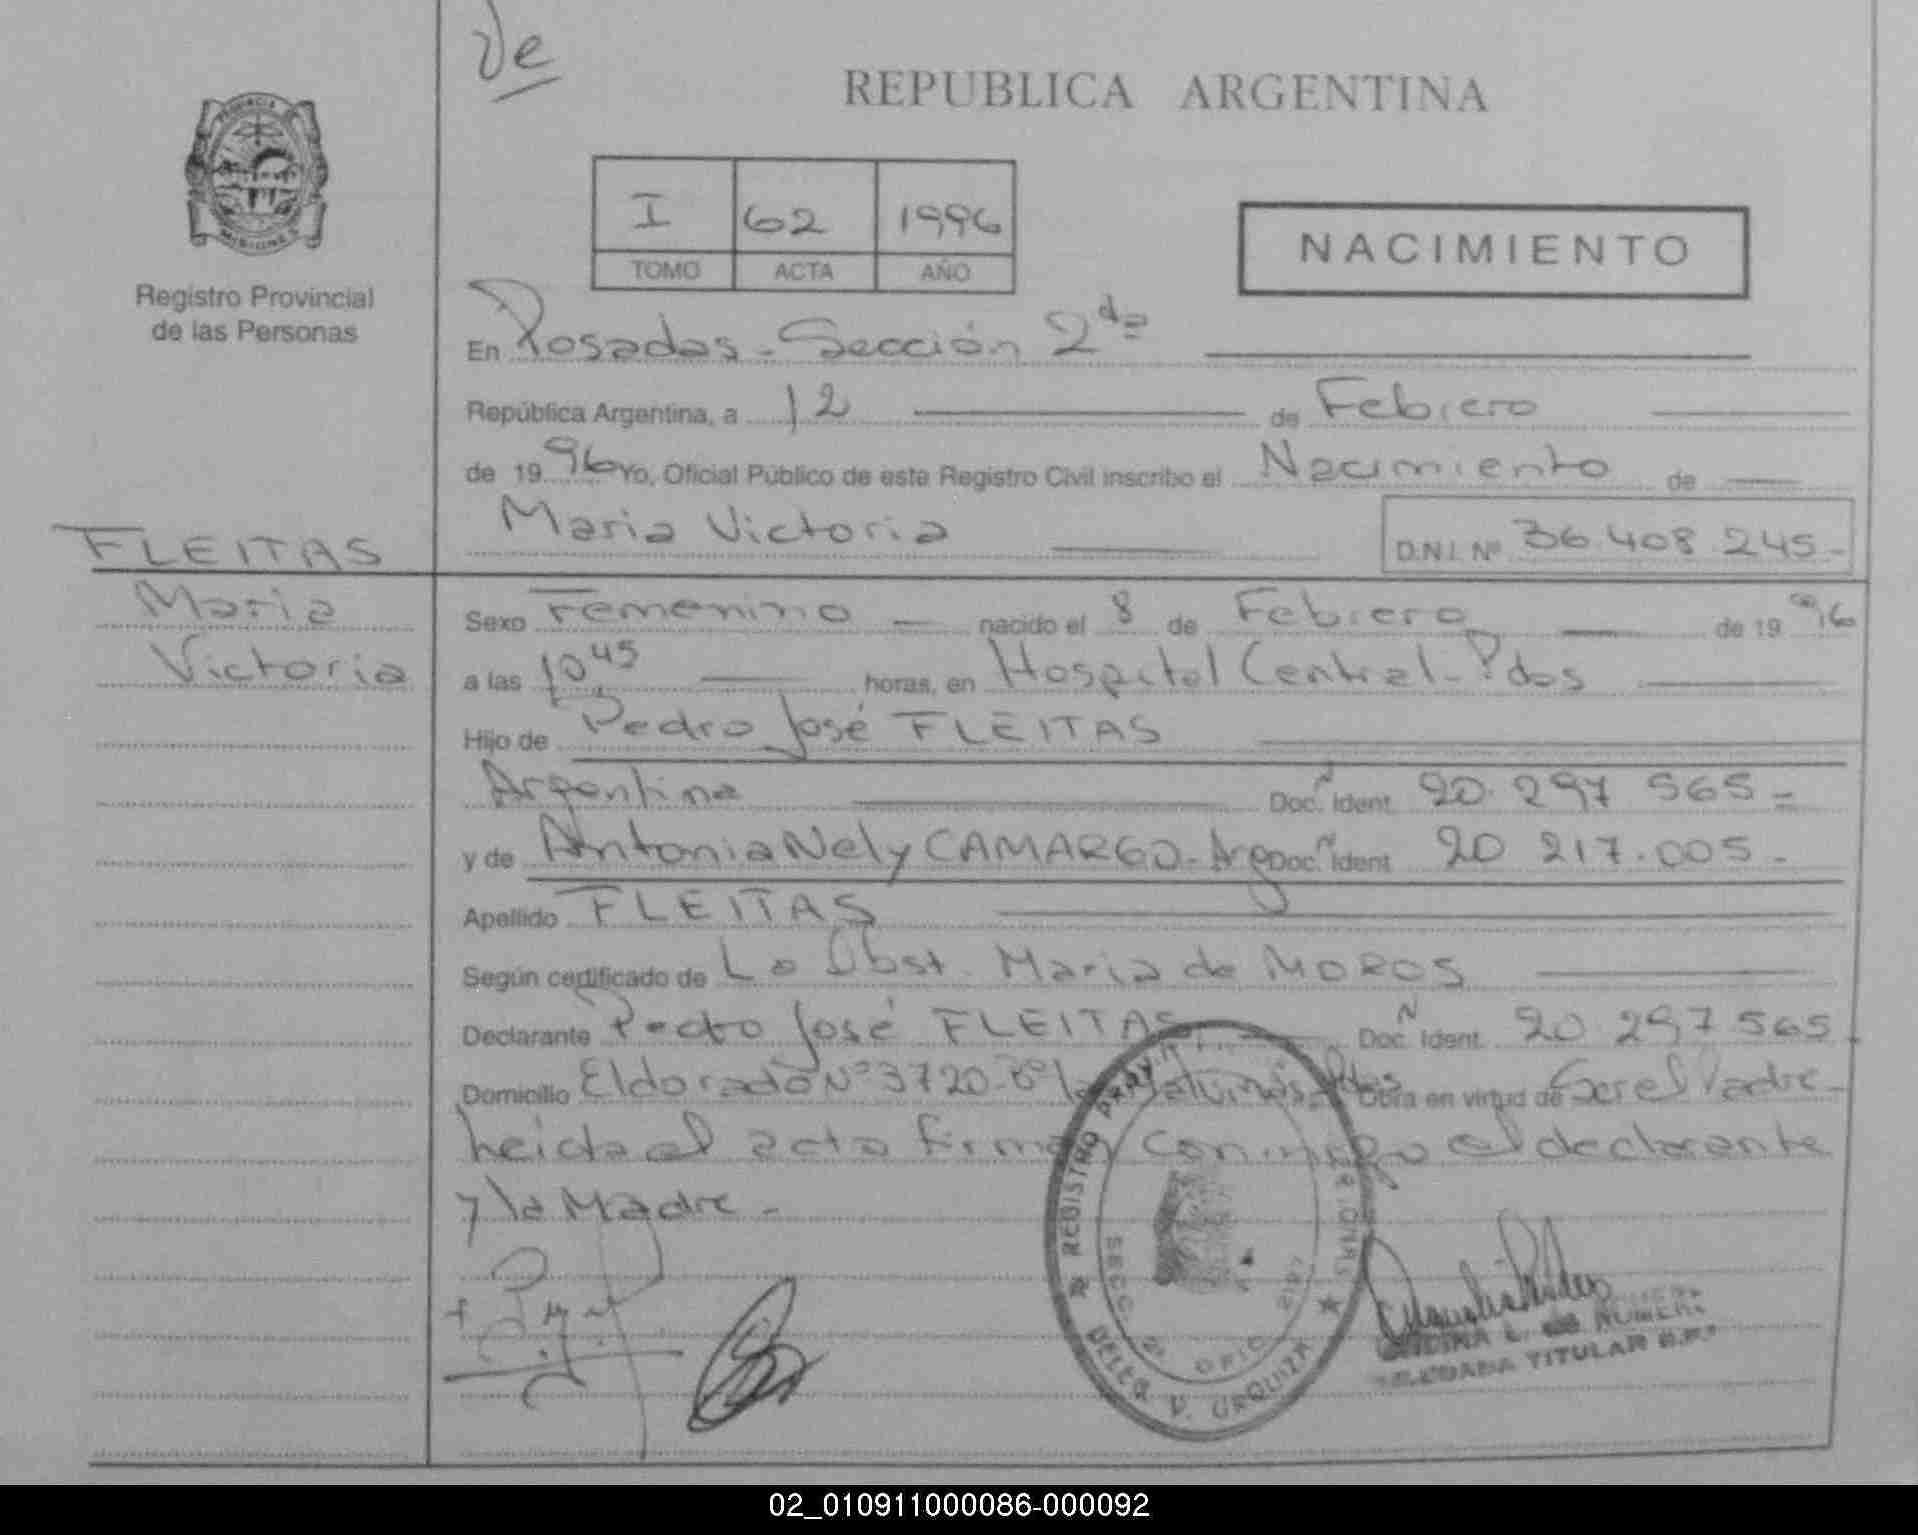 De
REPUBLICA ARGENTINA
PROVINCIA
MISIONES
Registro Provincial
de las Personas
I 62 1996
TOMO ACTA AÑO
NACIMIENTO
En Posadas - Sección 2da
República Argentina, a 12 de Febrero
de 1996 Yo, Oficial Público de este Registro Civil inscribo el Nacimiento de
Maria Victoria D.N.I. Nº 36.408.245-
FLEITAS
Maria
Victoria
Sexo Femenino nacido el 8 de Febrero de 1996
a las 10,45 horas, en Hospital Central - Pdas
Hijo de Pedro José FLEITAS
Argentina Doc. Ident. 20.297.565-
y de Antonia Nely CAMARGO - Arg Doc. Ident. 20.217.005-
Apellido FLEITAS
Según certificado de La Obst. Maria de MOROS
Declarante Pedro José FLEITAS Doc. Ident. 20.297.565
Domicilio Eldorado Nº 3720 - Bº las Pdas Obra en virtud de Ser el Padre-
heida el acta firman conmigo el declarante
y la Madre -
REGISTRO
SECC. 2a OFIC.
DELEG. V. URQUIZA
TITULAR
02_010911000086-000092